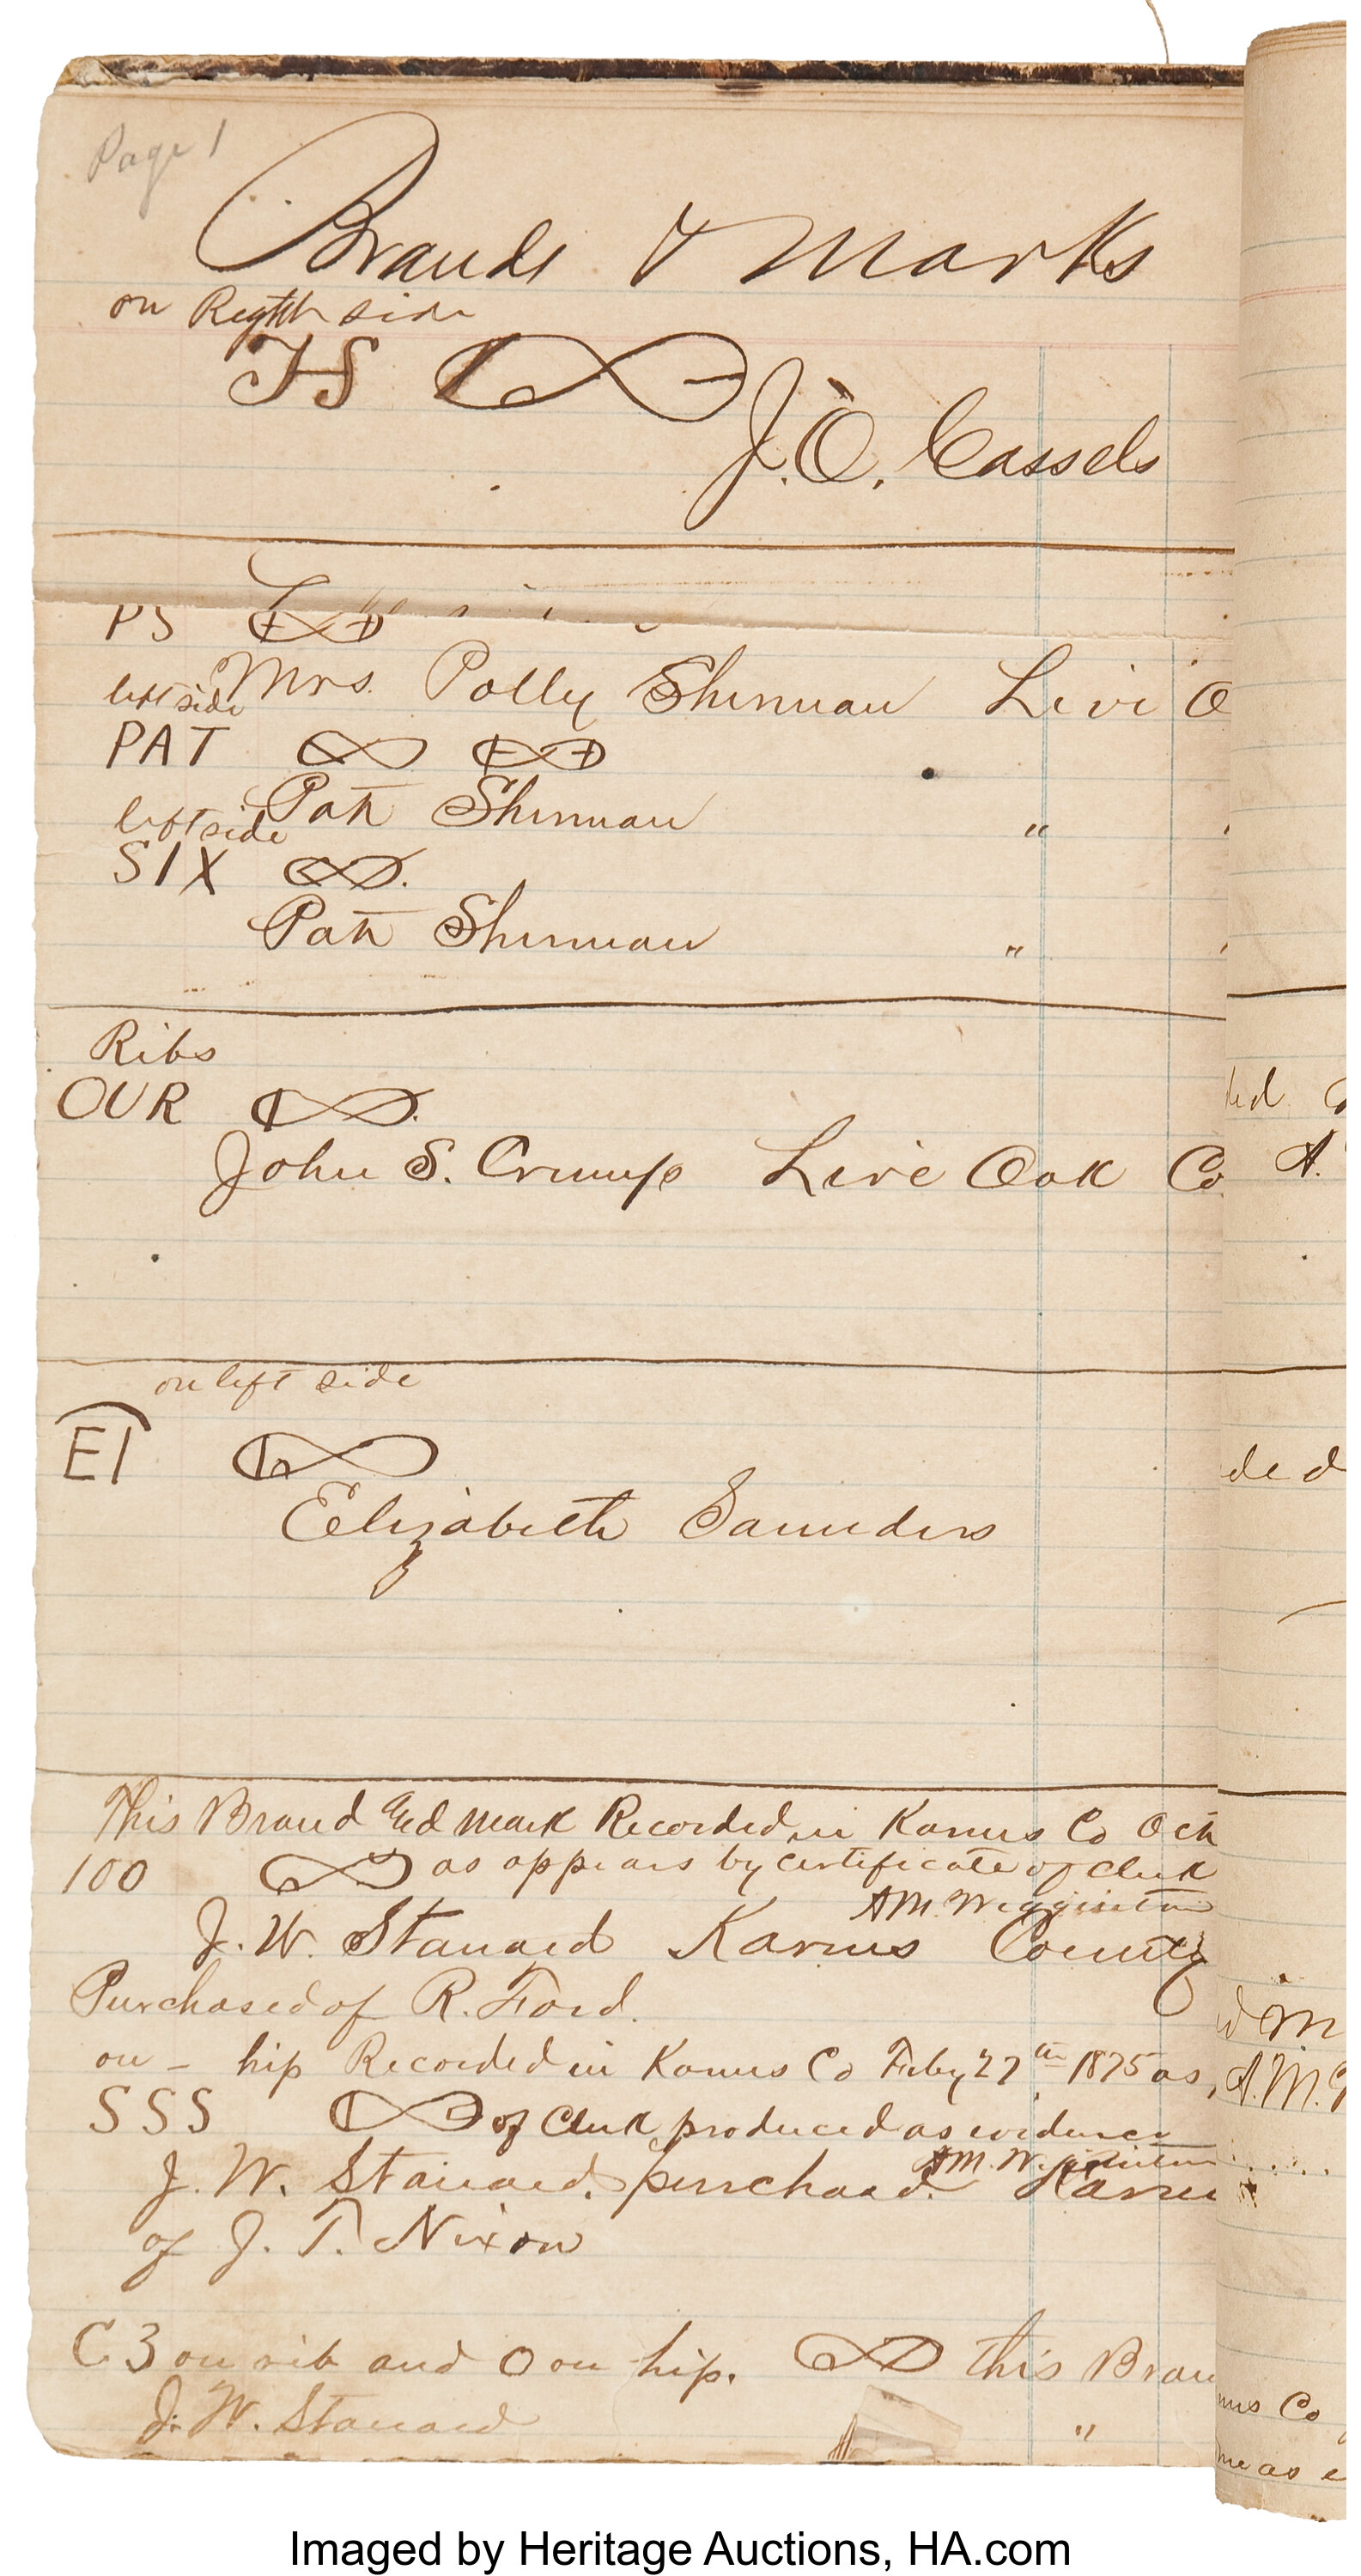 Page 1
Brands & Marks
on Regtth side
HS
J. O. Cassels
PS
left side Mrs. Polly Shinman Live O
PAT
left side Pat Shinman "
SIX
Pat Shinman "
Ribs
OUR
John S. Crump Live Oak Co.
on left side
EI
Elizabeth Saunders
This Brand and mark Recorded in Karnes Co Oct
100 as appears by certificate of Clerk
A M. Wigginton
J. W. Stanard Karnes County
Purchased of R. Ford.
on - hip Recorded in Karnes Co Feby 27th 1875 as,
SSS of Clerk produced as evidence
AM. Wigginton
J. W. Stanard. purchased. Karne
of J. T. Nixon
C3 on rib and O on hip. this Bran
J. W. Stanard "
ded
A.
ded
A. M.
Co
me as e
Imaged by Heritage Auctions, HA.com